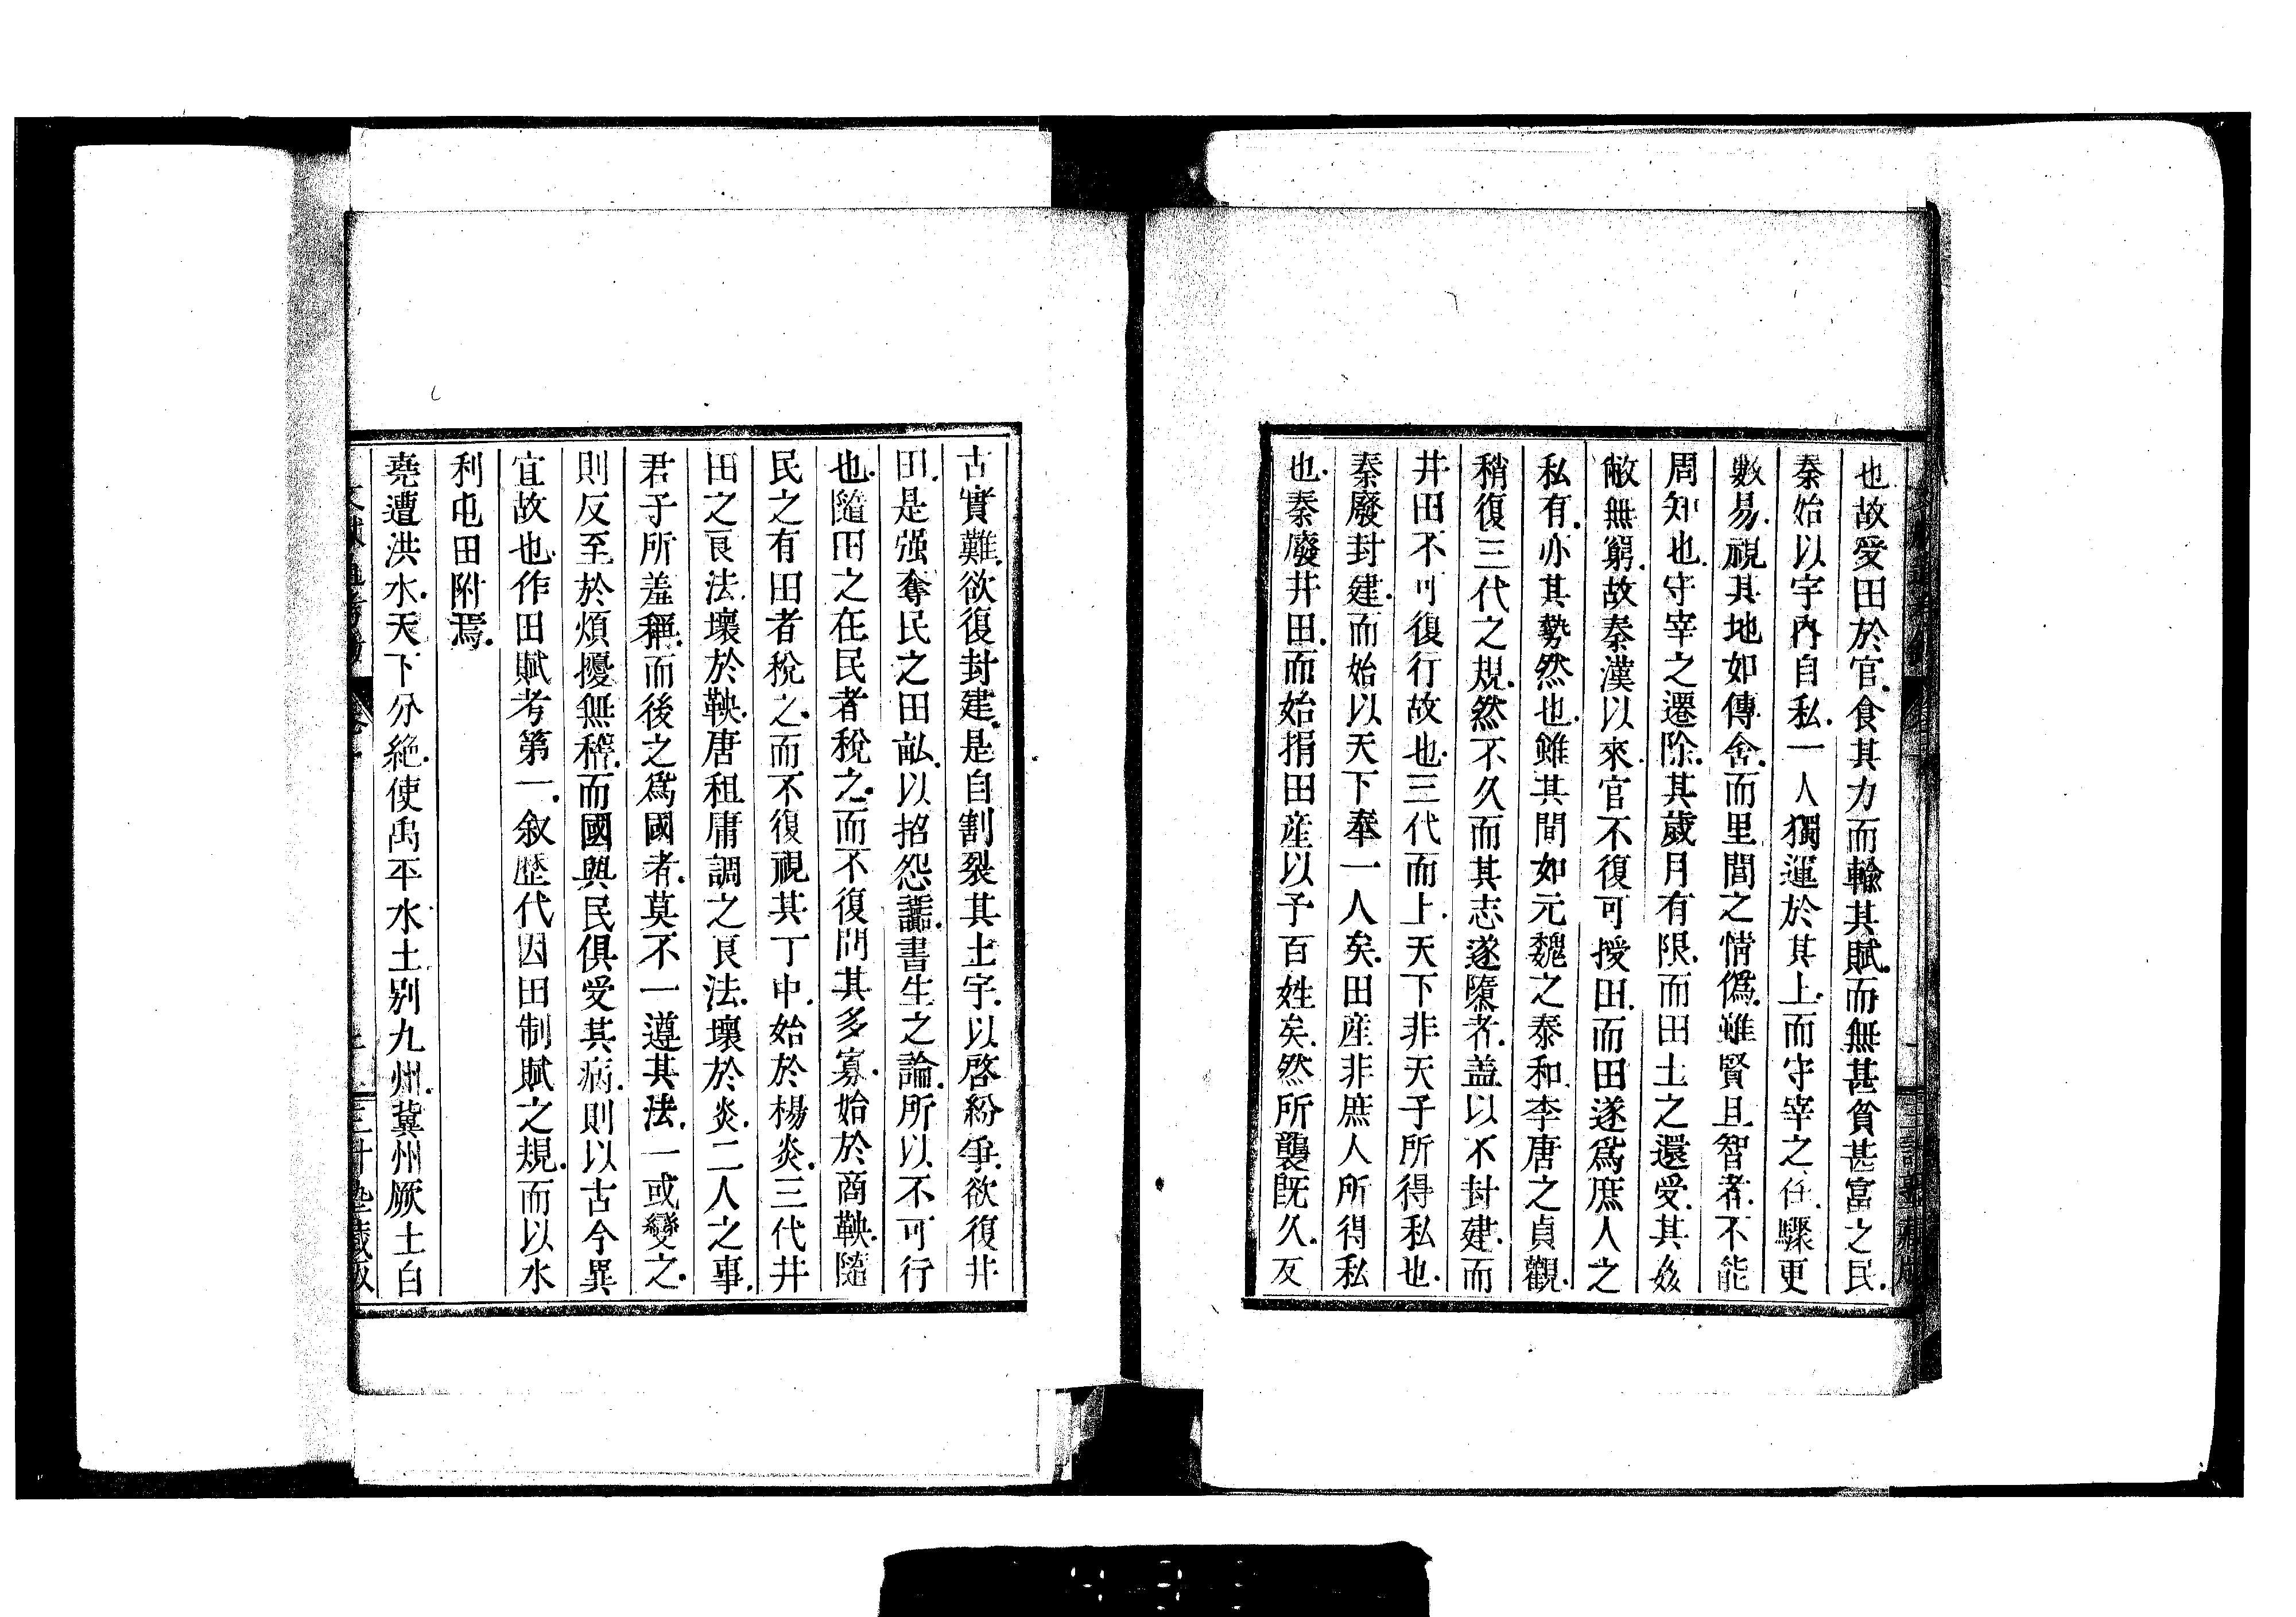 也故受田於官.食其力而輸其賦.而無甚貧甚富之民.
秦始以宇內自私.一人獨運於其上.而守宰之任.驟更
數易.視其地如傳舍.而里閭之情僞.雖賢且智者.不能
周知也.守宰之遷除.其歲月有限.而田土之還受.其姦
敝無窮.故秦漢以來.官不復可授田.而田遂爲庶人之
私有.亦其勢然也.雖其間如元魏之泰和.李唐之貞觀.
稍復三代之規.然不久而其志遂隳者.盖以不封建.而
井田不可復行故也.三代而上.天下非天子所得私也.
秦廢封建.而始以天下奉一人矣.田產非庶人所得私
也.秦廢井田.而始捐田產以予百姓矣.然所襲既久.反
古實難.欲復封建.是自割裂其土宇.以啓紛爭.欲復井
田.是强奪民之田畝.以招怨讟.書生之論.所以不可行
也.隨田之在民者稅之.而不復問其多寡.始於商鞅.隨
民之有田者稅之.而不復視其丁中.始於楊炎.三代井
田之良法.壞於鞅.唐租庸調之良法.壞於炎.二人之事.
君子所羞稱.而後之爲國者.莫不一遵其法.一或變之.
則反至於煩擾無稽.而國與民俱受其病.則以古今異
宜故也.作田賦考第一.叙歷代因田制賦之規.而以水
利屯田附焉.
堯遭洪水.天下分絶.使禹平水土別九州.冀州厥土白